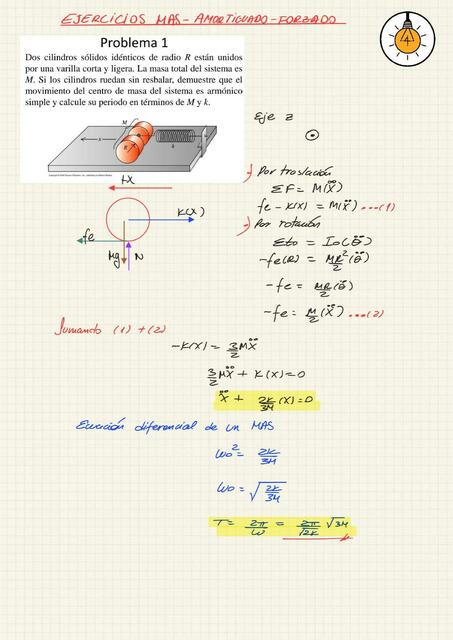 EJERCICIOS MAS - AMORTIGUADO - FORZADO
Problema 1
Dos cilindros sólidos idénticos de radio R están unidos
por una varilla corta y ligera. La masa total del sistema es
M. Si los cilindros ruedan sin resbalar, demuestre que el
movimiento del centro de masa del sistema es armónico
simple y calcule su periodo en términos de M y k.
M
x
R
k
Eje z
+x
k(x)
fe
Mg
N
Por traslación
ΣF = M(ẍ)
fe - k(x) = M(ẍ) ...(1)
Por rotación
Σto = Io(θ̈)
-fe(R) = MR²/2 (θ̈)
-fe = MR/2 (θ̈)
-fe = M/2 (ẍ) ...(2)
Sumando (1) + (2)
-k(x) = 3/2 Mẍ
3/2 Mẍ + k(x) = 0
ẍ + 2k/3M (x) = 0
Ecuación diferencial de un MAS
ωo² = 2k/3M
ωo = √(2k/3M)
T = 2π/ω = 2π/√2k √3M